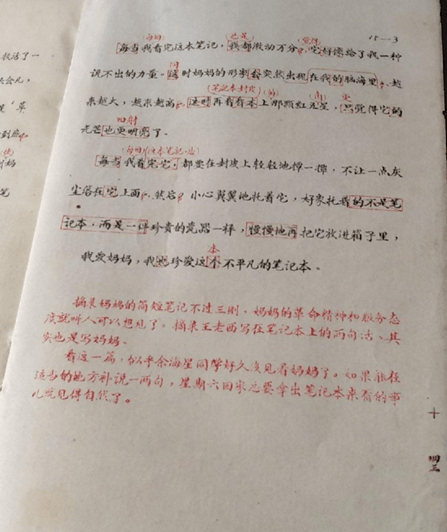 15—3
每当我看完这本笔记,我都激动万分,它好像给了我一种
说不出的力量。同时妈妈的形象突然出现在我的脑海里,越
来越大,越来越高,这时再看看本上那颗红五星,觉得它的
光芒也更明亮了。
每当我看完它,都要在封皮上轻轻地掸一掸,不让一点灰
尘落在它上面,然后小心翼翼地托着它,好象托着的不是笔
记本,而是一件珍贵的瓷器一样,慢慢地再把它放进箱子里,
我爱妈妈,我也珍爱这本不平凡的笔记本。
摘录妈妈的简短笔记不过三则,妈妈的革命精神和服务态
度就听人可以想见了。摘录王老西写在笔记本上的两句话,其
实也是写妈妈。
看这一篇,似乎余海星同学好久没见着妈妈了。如果能在
适当的地方补说一两句,星期六回来总要拿出笔记本来看的事
儿就见得自然了。
十
四三